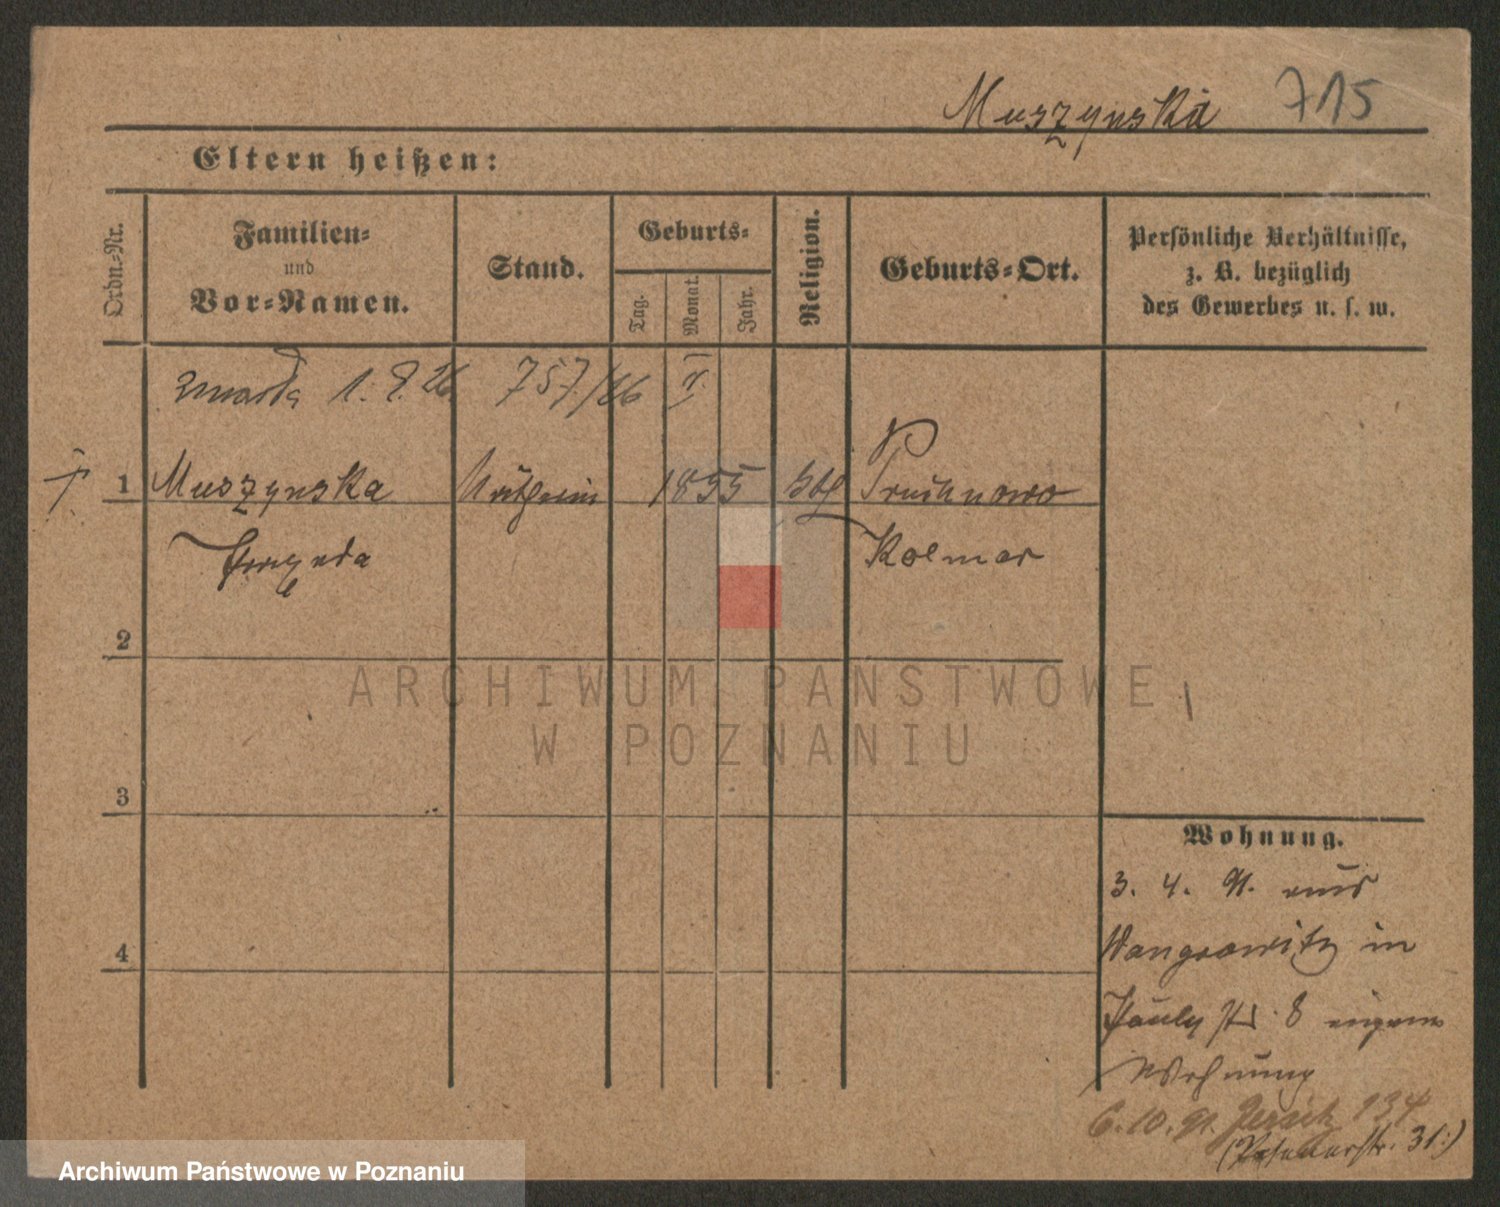 Muszynska 715
Eltern heißen:
Ordn.-Nr.
Familien-
und
Vor-Namen.
Stand.
Geburts-
Tag.
Monat.
Jahr.
Religion.
Geburts-Ort.
Persönliche Verhältnisse,
z. B. bezüglich
des Gewerbes u. s. w.
zmarła 1. 8. 26. 757/26 II
† 1 Muszynska 1855 kth Pruchnowo
Kolmar
2
3
4
Wohnung.
3. 4. 91. aus
Wongrowitz in
Pauly str. 8 eigene
Wohnung
6. 10. 91. Jersitz 134
(Posenerstr. 31.)
ARCHIWUM PAŃSTWOWE
W POZNANIU
Archiwum Państwowe w Poznaniu